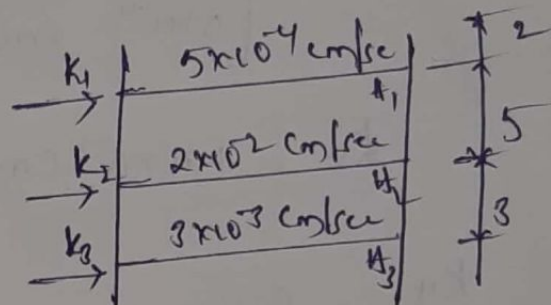 K1 5×10⁻⁴ cm/sec 2
H1
K2 2×10⁻² cm/sec 5
H2
K3 3×10⁻³ cm/sec 3
H3